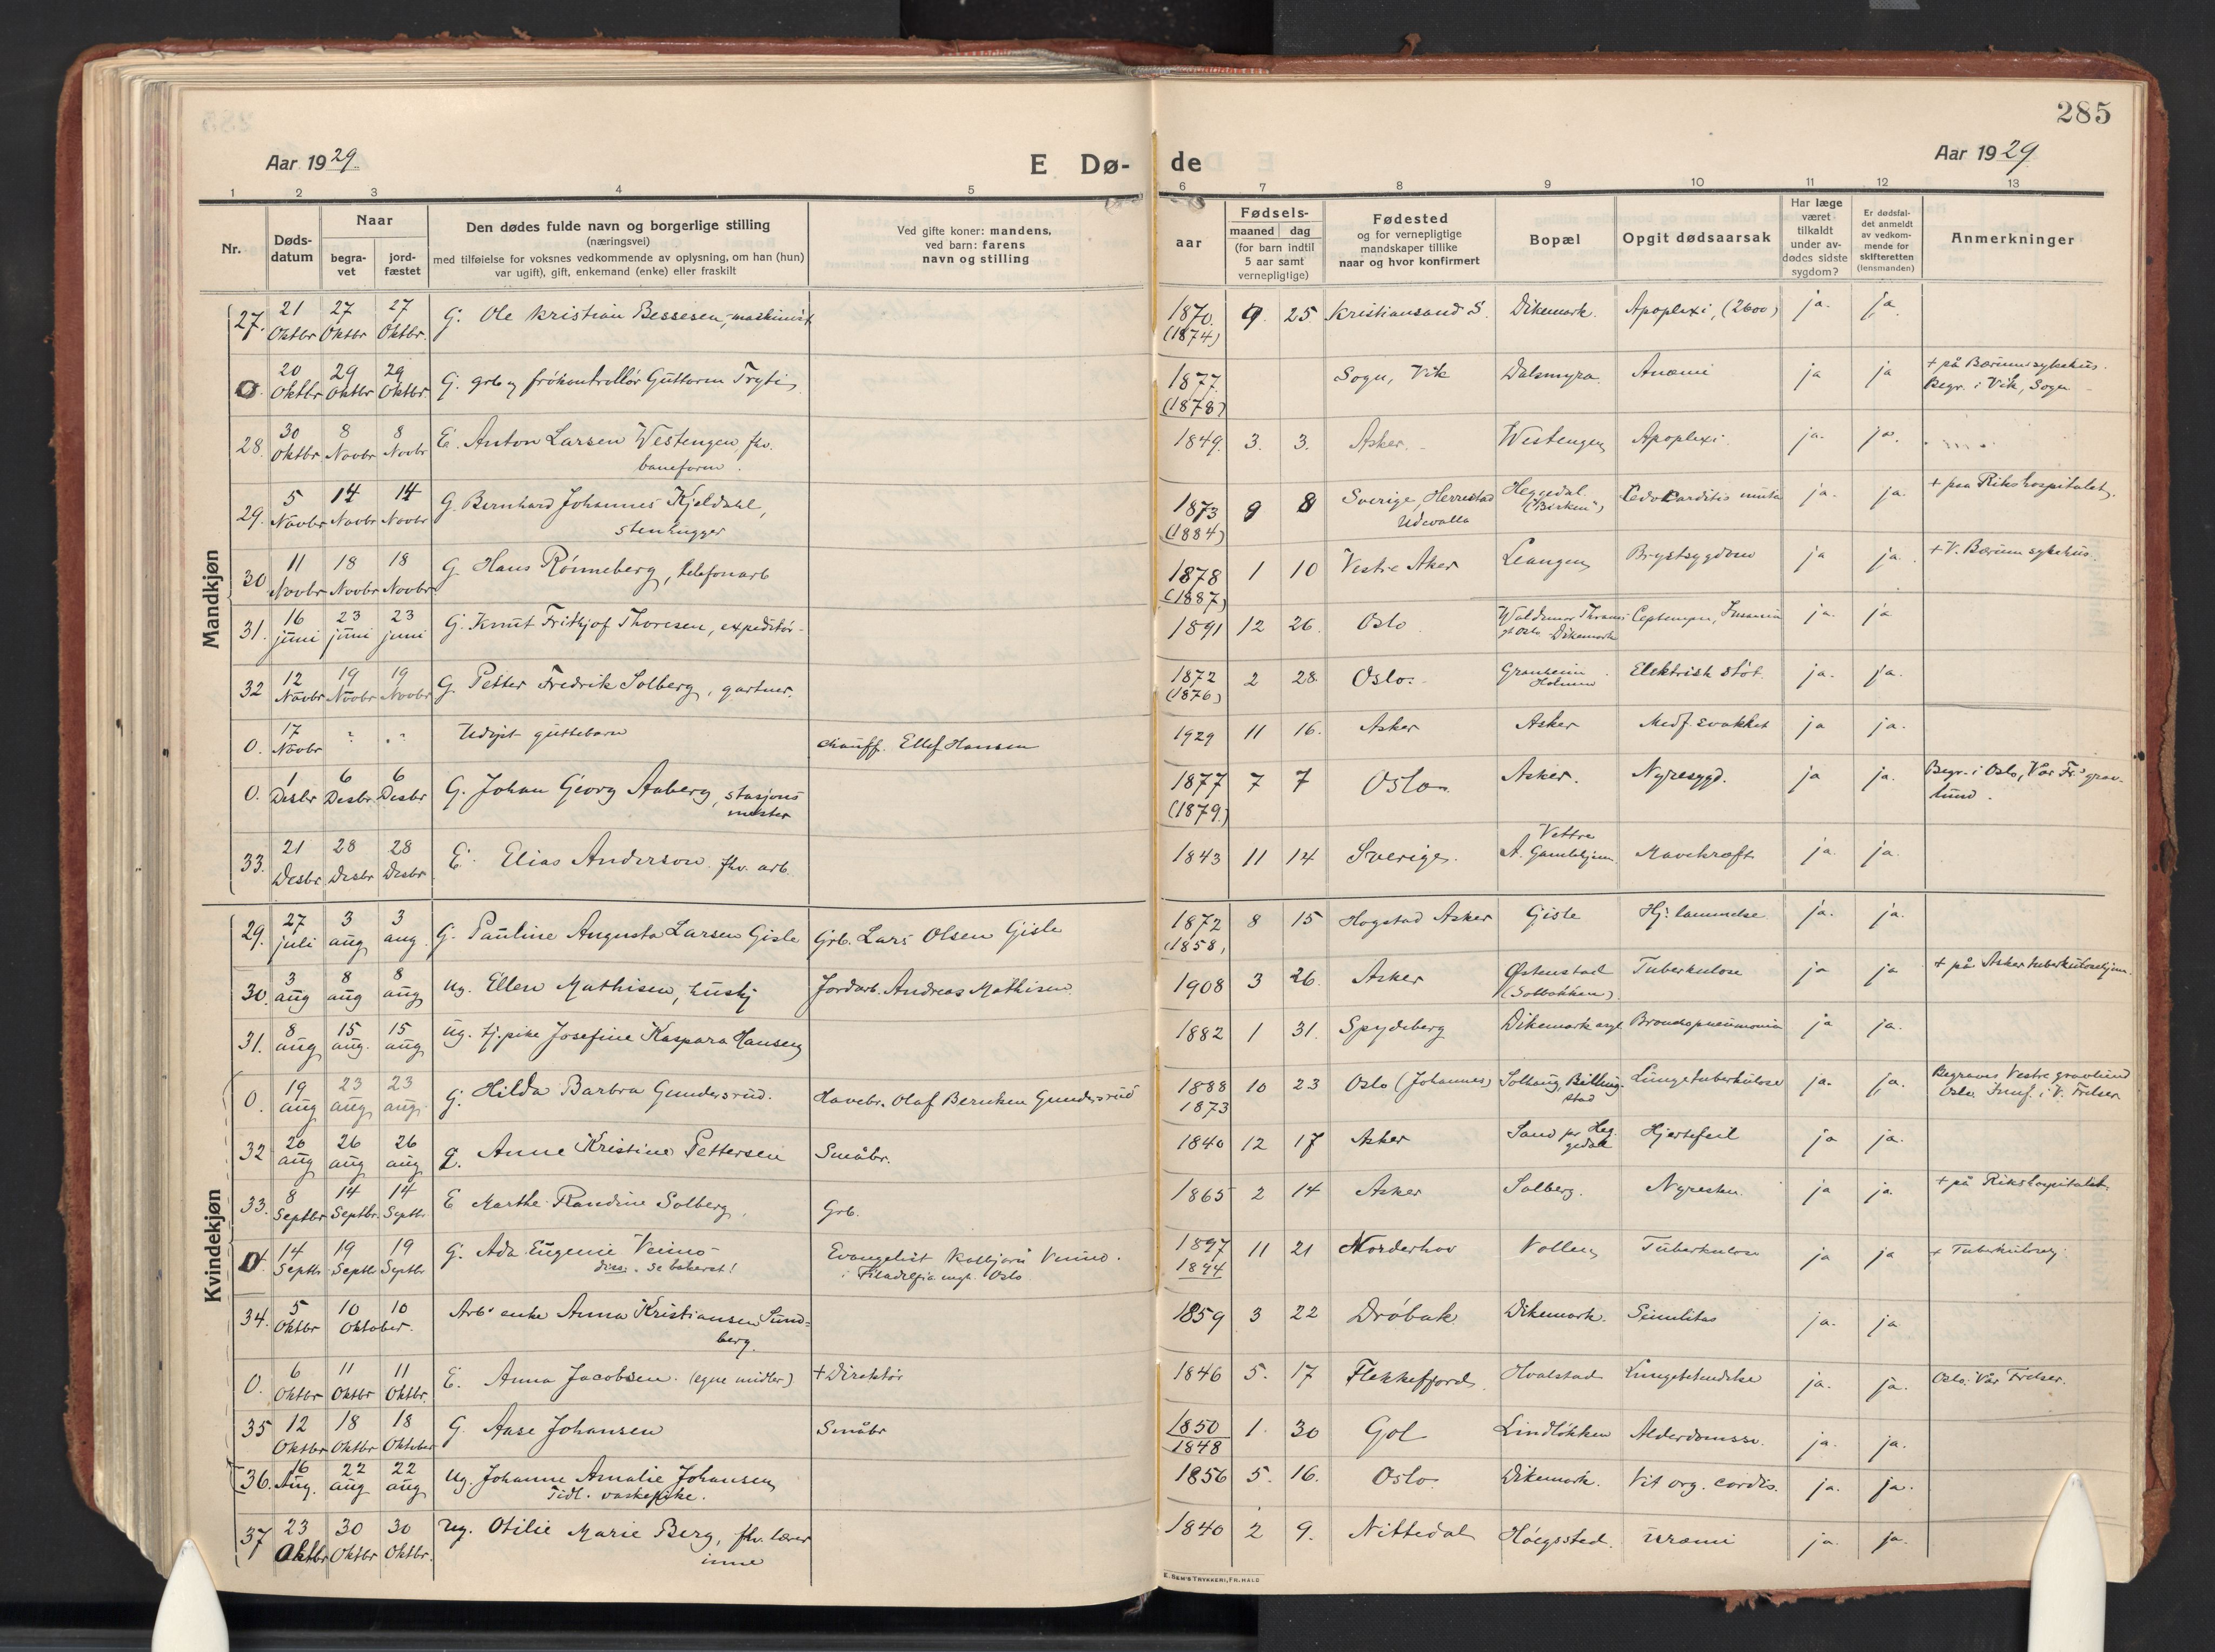 285
Aar 1929.
E Dø-
de
Aar 1929
1 2 3 4 5 6 7 8 9 10 11 12 13
Nr.
Døds-
datum
Naar
begra-
vet
jord-
fæstet
Den dødes fulde navn og borgerlige stilling
(næringsvei)
med tilføielse for voksnes vedkommende av oplysning, om han (hun)
var ugift), gift, enkemand (enke) eller fraskilt
Ved gifte koner: mandens,
ved barn: farens
navn og stilling
aar
Fødsels-
maaned dag
(for barn indtil
5 aar samt
vernepligtige)
Fødested
og for vernepligtige
mandskaper tillike
naar og hvor konfirmert
Bopæl
Opgit dødsaarsak
Har læge
været
tilkaldt
under av-
dødes sidste
sygdom?
Er dødsfal-
det anmeldt
av vedkom-
mende for
skifteretten
(lensmanden)
Anmerkninger
Mandkjøn
27. 21 Oktbr 27 Oktbr 27 Oktbr. G. Ole Kristian Bessesen, maskinist 1870. (1874) 9. 25. Kristiansand S. Dikemark. Apoplexi, (2600) ja. ja.
0. 20 Oktbr 29 Oktbr 29 Oktbr G. grb. og frökontrollör Guttorm Tryti 1877. (1878) Sogn, Vik Dalsmyra. Anæmi ja ja + på Bærum sykehus.
Begr. i Vik, Sogn
28. 30 Oktbr. 8 Novbr 8 Novbr E. Anton Larsen Westengen, fhv.
baneform. 1849. 3. 3. Asker. Westengen Apoplexi. ja. ja.
29. 5 Novbr 14 Novbr 14 Novbr G. Bernhard Johannes Kjeldahl,
stenhugger 1873 (1884) 9 8 Sverige, Herrestad
Udevalla Heggedal.
("Birken") ja. ja. + paa Rikshospitalet.
30 11 Novbr 18 Novbr 18 Novbr. G Hans Rönneberg, telefonarb 1878 (1887) 1 10 Vestre Aker Leangen Brystsygdom ja ja. + V. Bærum sykehus.
31. 16 juni 23 juni 23 juni G. Knut Fritjof Thoresen, expeditör. 1891 12 26. Oslo. Waldemar Thranes
gt Oslo. Dikemark ja. ja
32 12 Novbr 19 Novbr 19 Novbr G. Petter Fredrik Solberg, gartner. 1872 (1876) 2 28. Oslo. Granheim
Holmen Elektrisk stöt. ja. ja.
0. 17 Novbr Udöpt guttebarn chauff. Ellef Hansen 1929 11 16. Asker Asker Medf. svakhet ja ja.
0. 1 Desbr 6 Desbr 6 Desbr G. Johan Georg Aaberg, stasjons
mester 1877 (1879) 7 7 Oslo. Asker. Nyresygd. ja ja. Begr. i Oslo, Vor Fr's grav-
lund.
33. 21 Desbr 28 Desbr 28 Desbr E. Elias Anderson. fhv. arb. 1843 11 14 Sverige. Vettre
A. Gamlehjem. Mavekræft ja. ja.
Kvindekjøn
29. 27 juli 3 aug 3 aug. G. Pauline Augusta Larsen Gisle Grb. Lars Olsen Gisle 1872 (1858) 8 15 Hogstad Asker Gisle Hj. lammelse ja. ja.
30. 3 aug 8 aug 8 aug Ug. Ellen Mathisen, hushj Jordarb. Andreas Mathisen. 1908 3 26. Asker Østenstad
(Solbakken). Tuberkulose ja ja + på Asker tuberkulosehjem.
31. 8 aug 15 aug. 15 aug Ug. tj.pike Josefine Kaspara Hansen 1882 1 31. Spydeberg Dikemark asyl Bronchopneumonia ja ja.
0. 19 aug 23 aug 23 aug. G. Hilda Barbra Gundersrud. Havebr. Olaf Berntsen Gundersrud 1888 1873 10 23 Oslo (Johannes) Solhaug, Billing-
stad Lungetuberkulose ja. ja. Begraves Vestre gravlund
Oslo. i V. Frelser
32 20 aug 26 aug 26 aug g. Anne Kristine Pettersen Småbr. 1840 12 17 Asker Sand pr Heg-
gedal Hjertefeil ja ja.
33. 8 Septbr 14 Septbr. 14 Septbr E Marthe Randine Solberg. Grb. 1865 2 14 Asker Solberg. ja ja. + på Rikshospitalet.
0. 14 Septbr 19 Septbr 19 Septbr G. Ada Eugenie Veimo
diss. se bakerst! Evangelist Kolbjørn Veimo.
i Filadelfia mgt. Oslo 1897 1894 11 21 Norderhov Vollen Tuberkulose ja ja
34. 5 Oktbr 10 10 Oktober. Arb. enke Anna Kristiansen Sund-
berg. 1859 3 22 Dröbak Dikemark. Senilitas ja. ja
0. 6 Oktbr 11 Oktbr 11 Oktbr. E. Anna Jacobsen. (egne midler) + Direktör 1846 5. 17 Flekkefjord. Hvalstad Lungebetendelse ja. ja. Oslo. Vår Frelser.
35 12 Oktbr 18 Oktbr 18 Oktober G. Aase Johansen Småbr 1850 1848 1. 30 Gol Lindlökken Alderdomssv. ja. ja.
36. 16 Aug. 22 aug 22 aug Ug. Johanne Amalie Johansen
Tidl. vaskepike. 1856 5. 16. Oslo. Dikemark. Vit org. cordis. ja. ja.
37 23 Oktbr 30 Oktbr 30 Oktbr. Ug. Otilie Marie Berg, fhv. lærer
inne 1840 2 9. Nittedal Höegsted. Uræmi ja. ja.
E. SEM'S TRYKKERI, FR.HALD